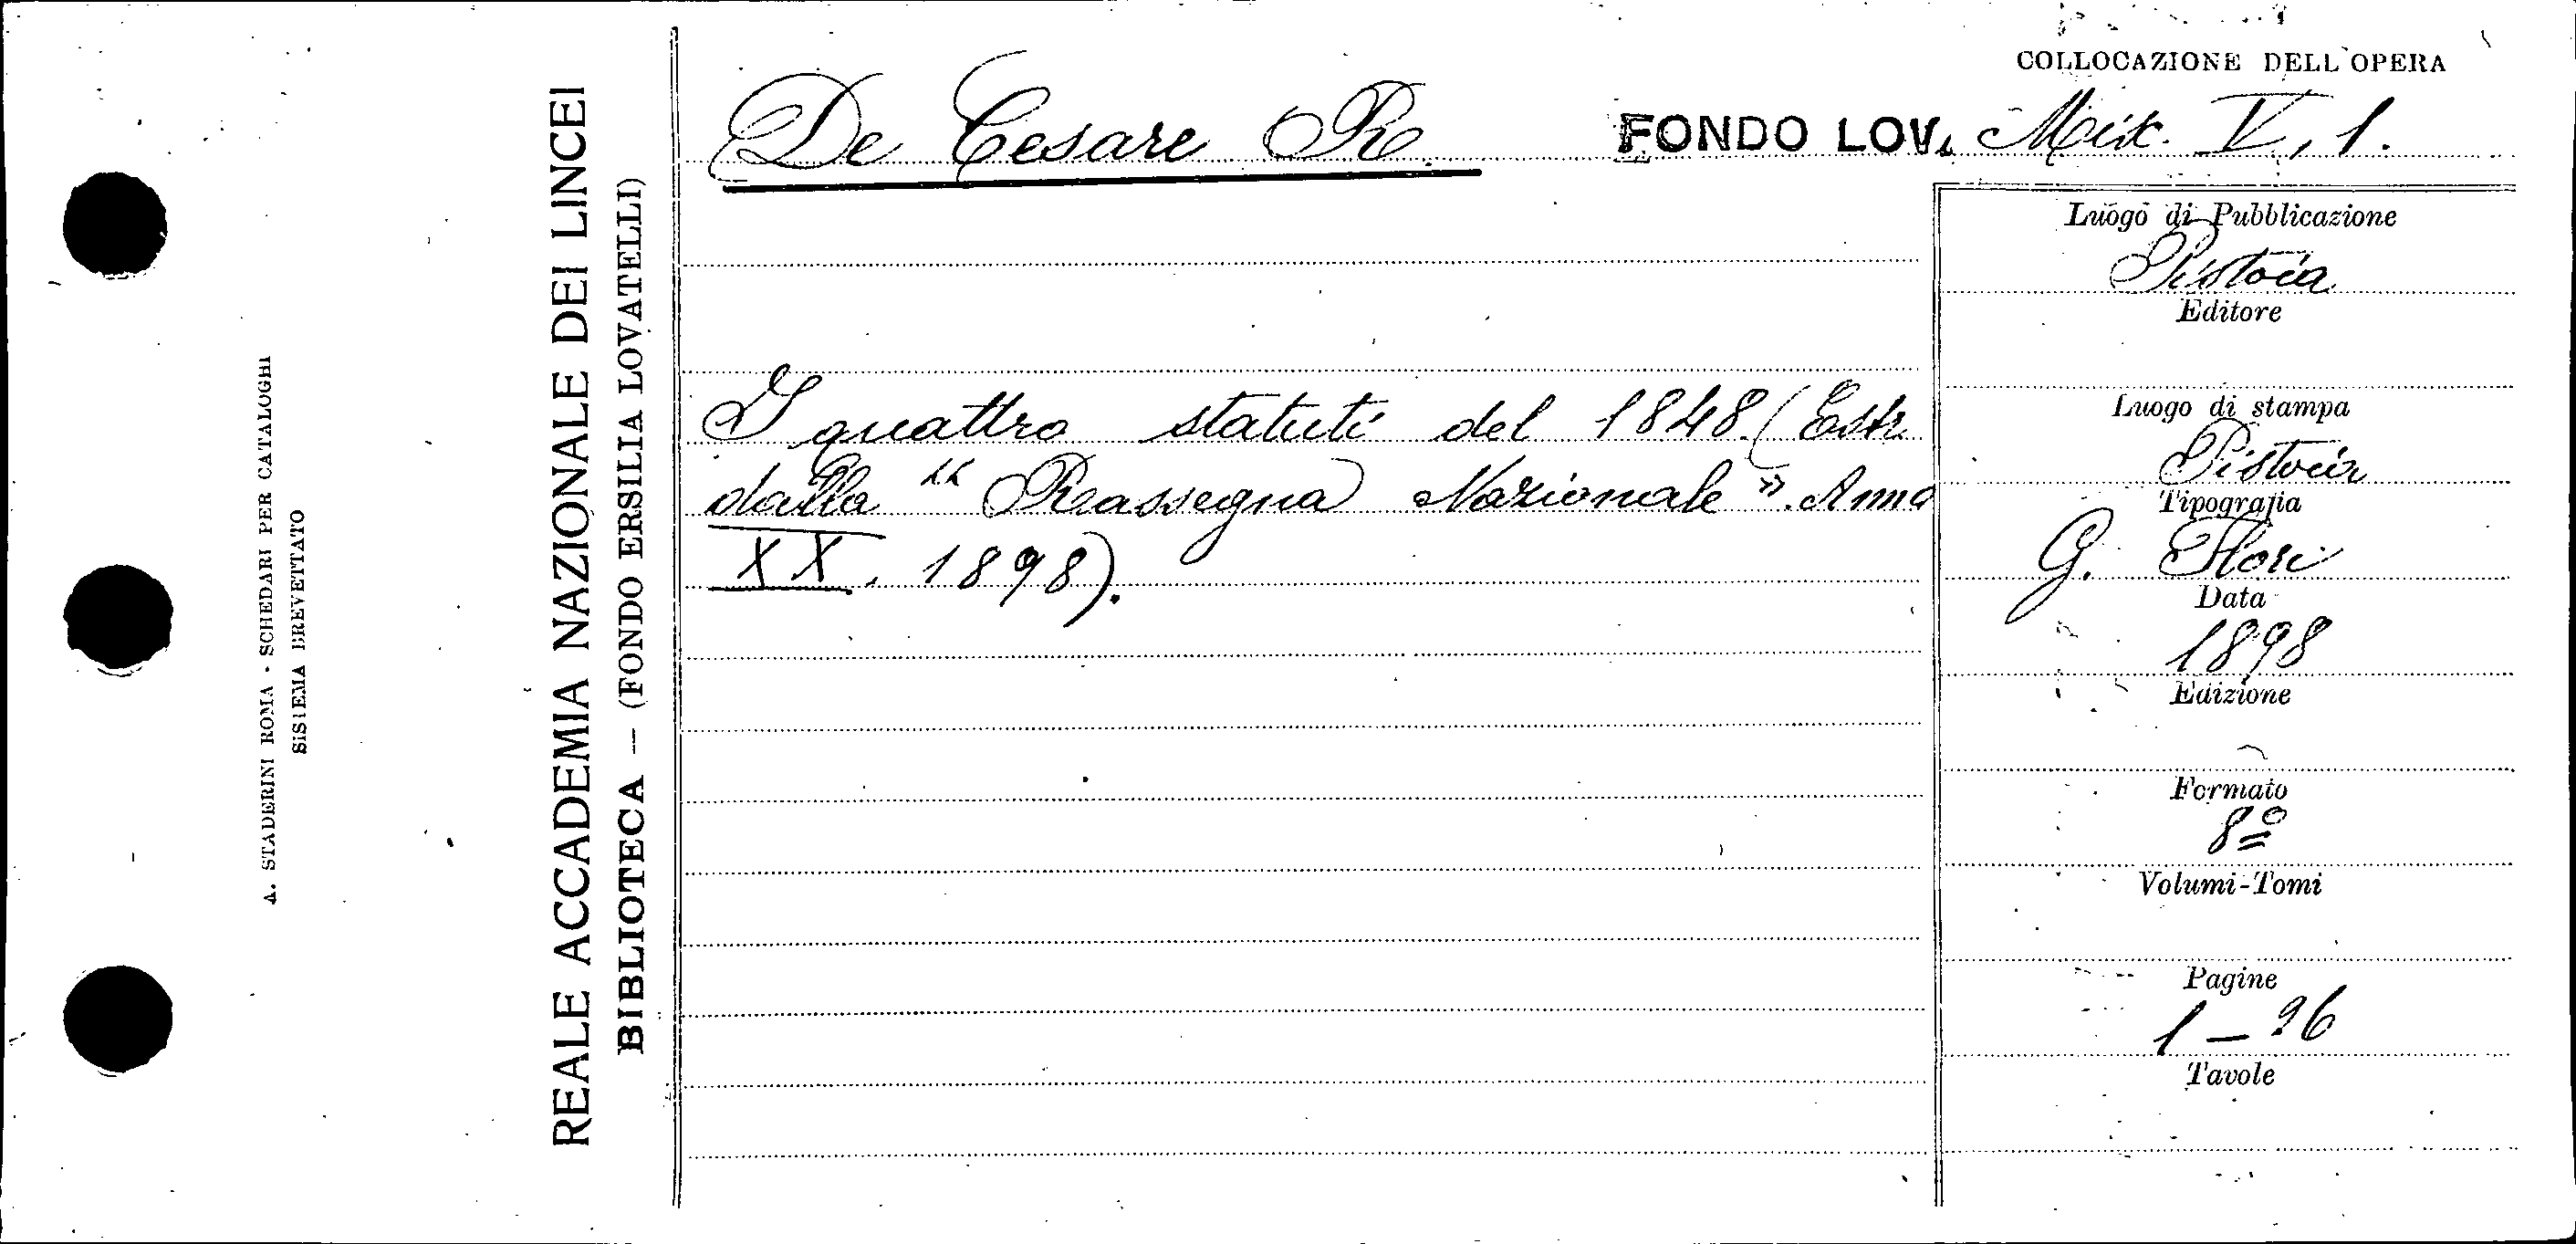 A. STADERINI ROMA - SCHEDARI PER CATALOGHI
SISTEMA BREVETTATO
REALE ACCADEMIA NAZIONALE DEI LINCEI
BIBLIOTECA — (FONDO ERSILIA LOVATELLI)
De Cesare R.
COLLOCAZIONE DELL'OPERA
FONDO LOV. Misc. V, 1.
I quattro statuti del 1848. (Estr.
dalla “ Rassegna Nazionale ”. Anno
XX, 1898).
Luogo di Pubblicazione
Pistoia
Editore
Luogo di stampa
Pistoia
Tipografia
G. Flori
Data
1898
Edizione
Formato
8º
Volumi-Tomi
Pagine
1 — 26
Tavole